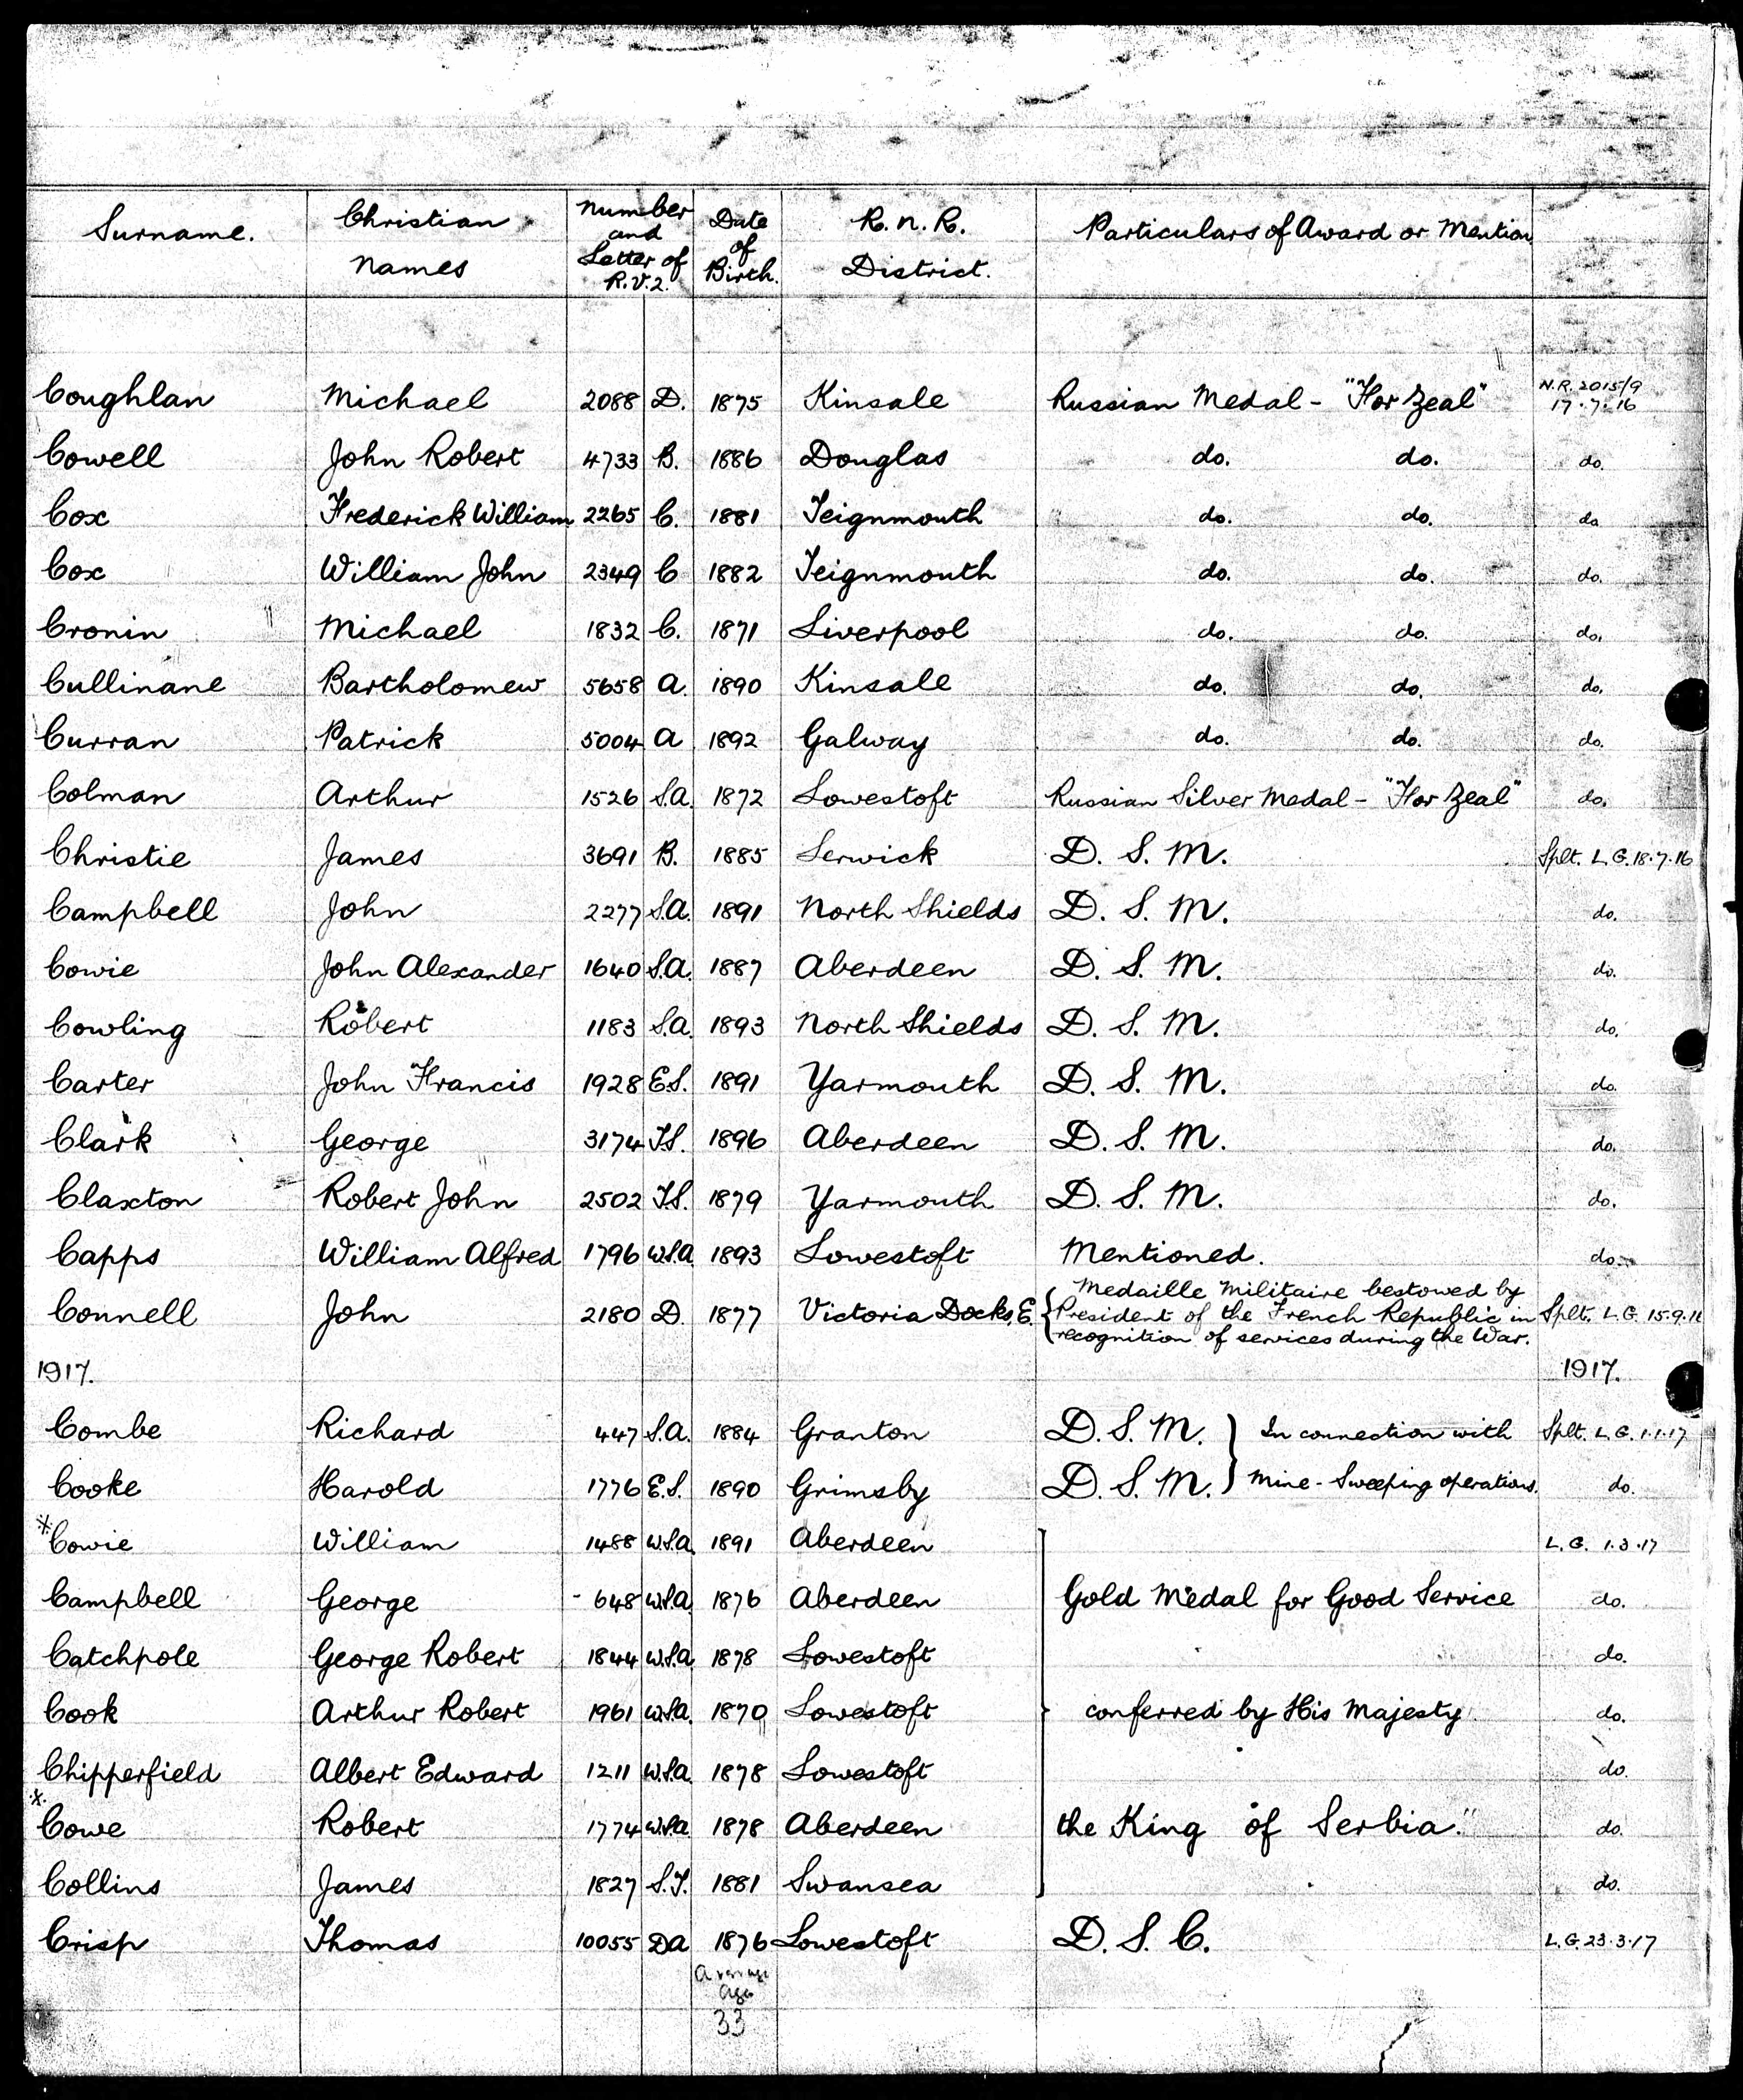 Surname. Christian Names Number and Letter of R.V.2. Date of Birth. R.N.R. District. Particulars of Award or Mention
Coughlan Michael 2088 D. 1875 Kinsale Russian Medal - "For Zeal" N.R. 2015/9 17.7.16
Cowell John Robert 4733 B. 1886 Douglas do. do. do.
Cox Frederick William 2265 C. 1881 Teignmouth do. do. do
Cox William John 2349 C 1882 Teignmouth do. do. do.
Cronin Michael 1832 C. 1871 Liverpool do. do. do.
Cullinane Bartholomew 5658 A. 1890 Kinsale do. do. do.
Curran Patrick 5004 A 1892 Galway do. do. do.
Colman Arthur 1526 S.A. 1872 Lowestoft Russian Silver Medal - "For Zeal" do.
Christie James 3691 B. 1885 Lerwick D. S. M. Splt. L.G. 18.7.16
Campbell John 2277 S.A. 1891 North Shields D. S. M. do.
Cowie John Alexander 1640 S.A. 1887 Aberdeen D. S. M. do.
Cowling Robert 1183 S.A. 1893 North Shields D. S. M. do.
Carter John Francis 1928 E.S. 1891 Yarmouth D. S. M. do.
Clark George 3174 T.S. 1896 Aberdeen D. S. M. do.
Claxton Robert John 2502 T.S. 1879 Yarmouth D. S. M. do.
Capps William Alfred 1796 W.S.A 1893 Lowestoft Mentioned. do.
Connell John 2180 D. 1877 Victoria Docks, E. Medaille Militaire bestowed by
President of the French Republic in Splt. L.G. 15.9.16
recognition of services during the War.
1917. 1917.
Combe Richard 447 S.A. 1884 Granton D. S. M. In connection with Splt. L.G. 1.1.17
Cooke Harold 1776 E.S. 1890 Grimsby D. S. M. Mine-Sweeping operations. do.
* Cowie William 1488 W.S.A. 1891 Aberdeen L.G. 1.3.17
Campbell George 648 W.S.A 1876 Aberdeen Gold Medal for Good Service do.
Catchpole George Robert 1844 W.S.A 1878 Lowestoft do.
Cook Arthur Robert 1961 W.S.A. 1870 Lowestoft conferred by His Majesty do.
Chipperfield Albert Edward 1211 W.S.A. 1878 Lowestoft do.
* Cowe Robert 1774 W.S.A. 1878 Aberdeen the King of Serbia." do.
Collins James 1827 S.T. 1881 Swansea do.
Crisp Thomas 10055 DA 1876 Lowestoft D. S. C. L.G. 23.3.17
average
age
33